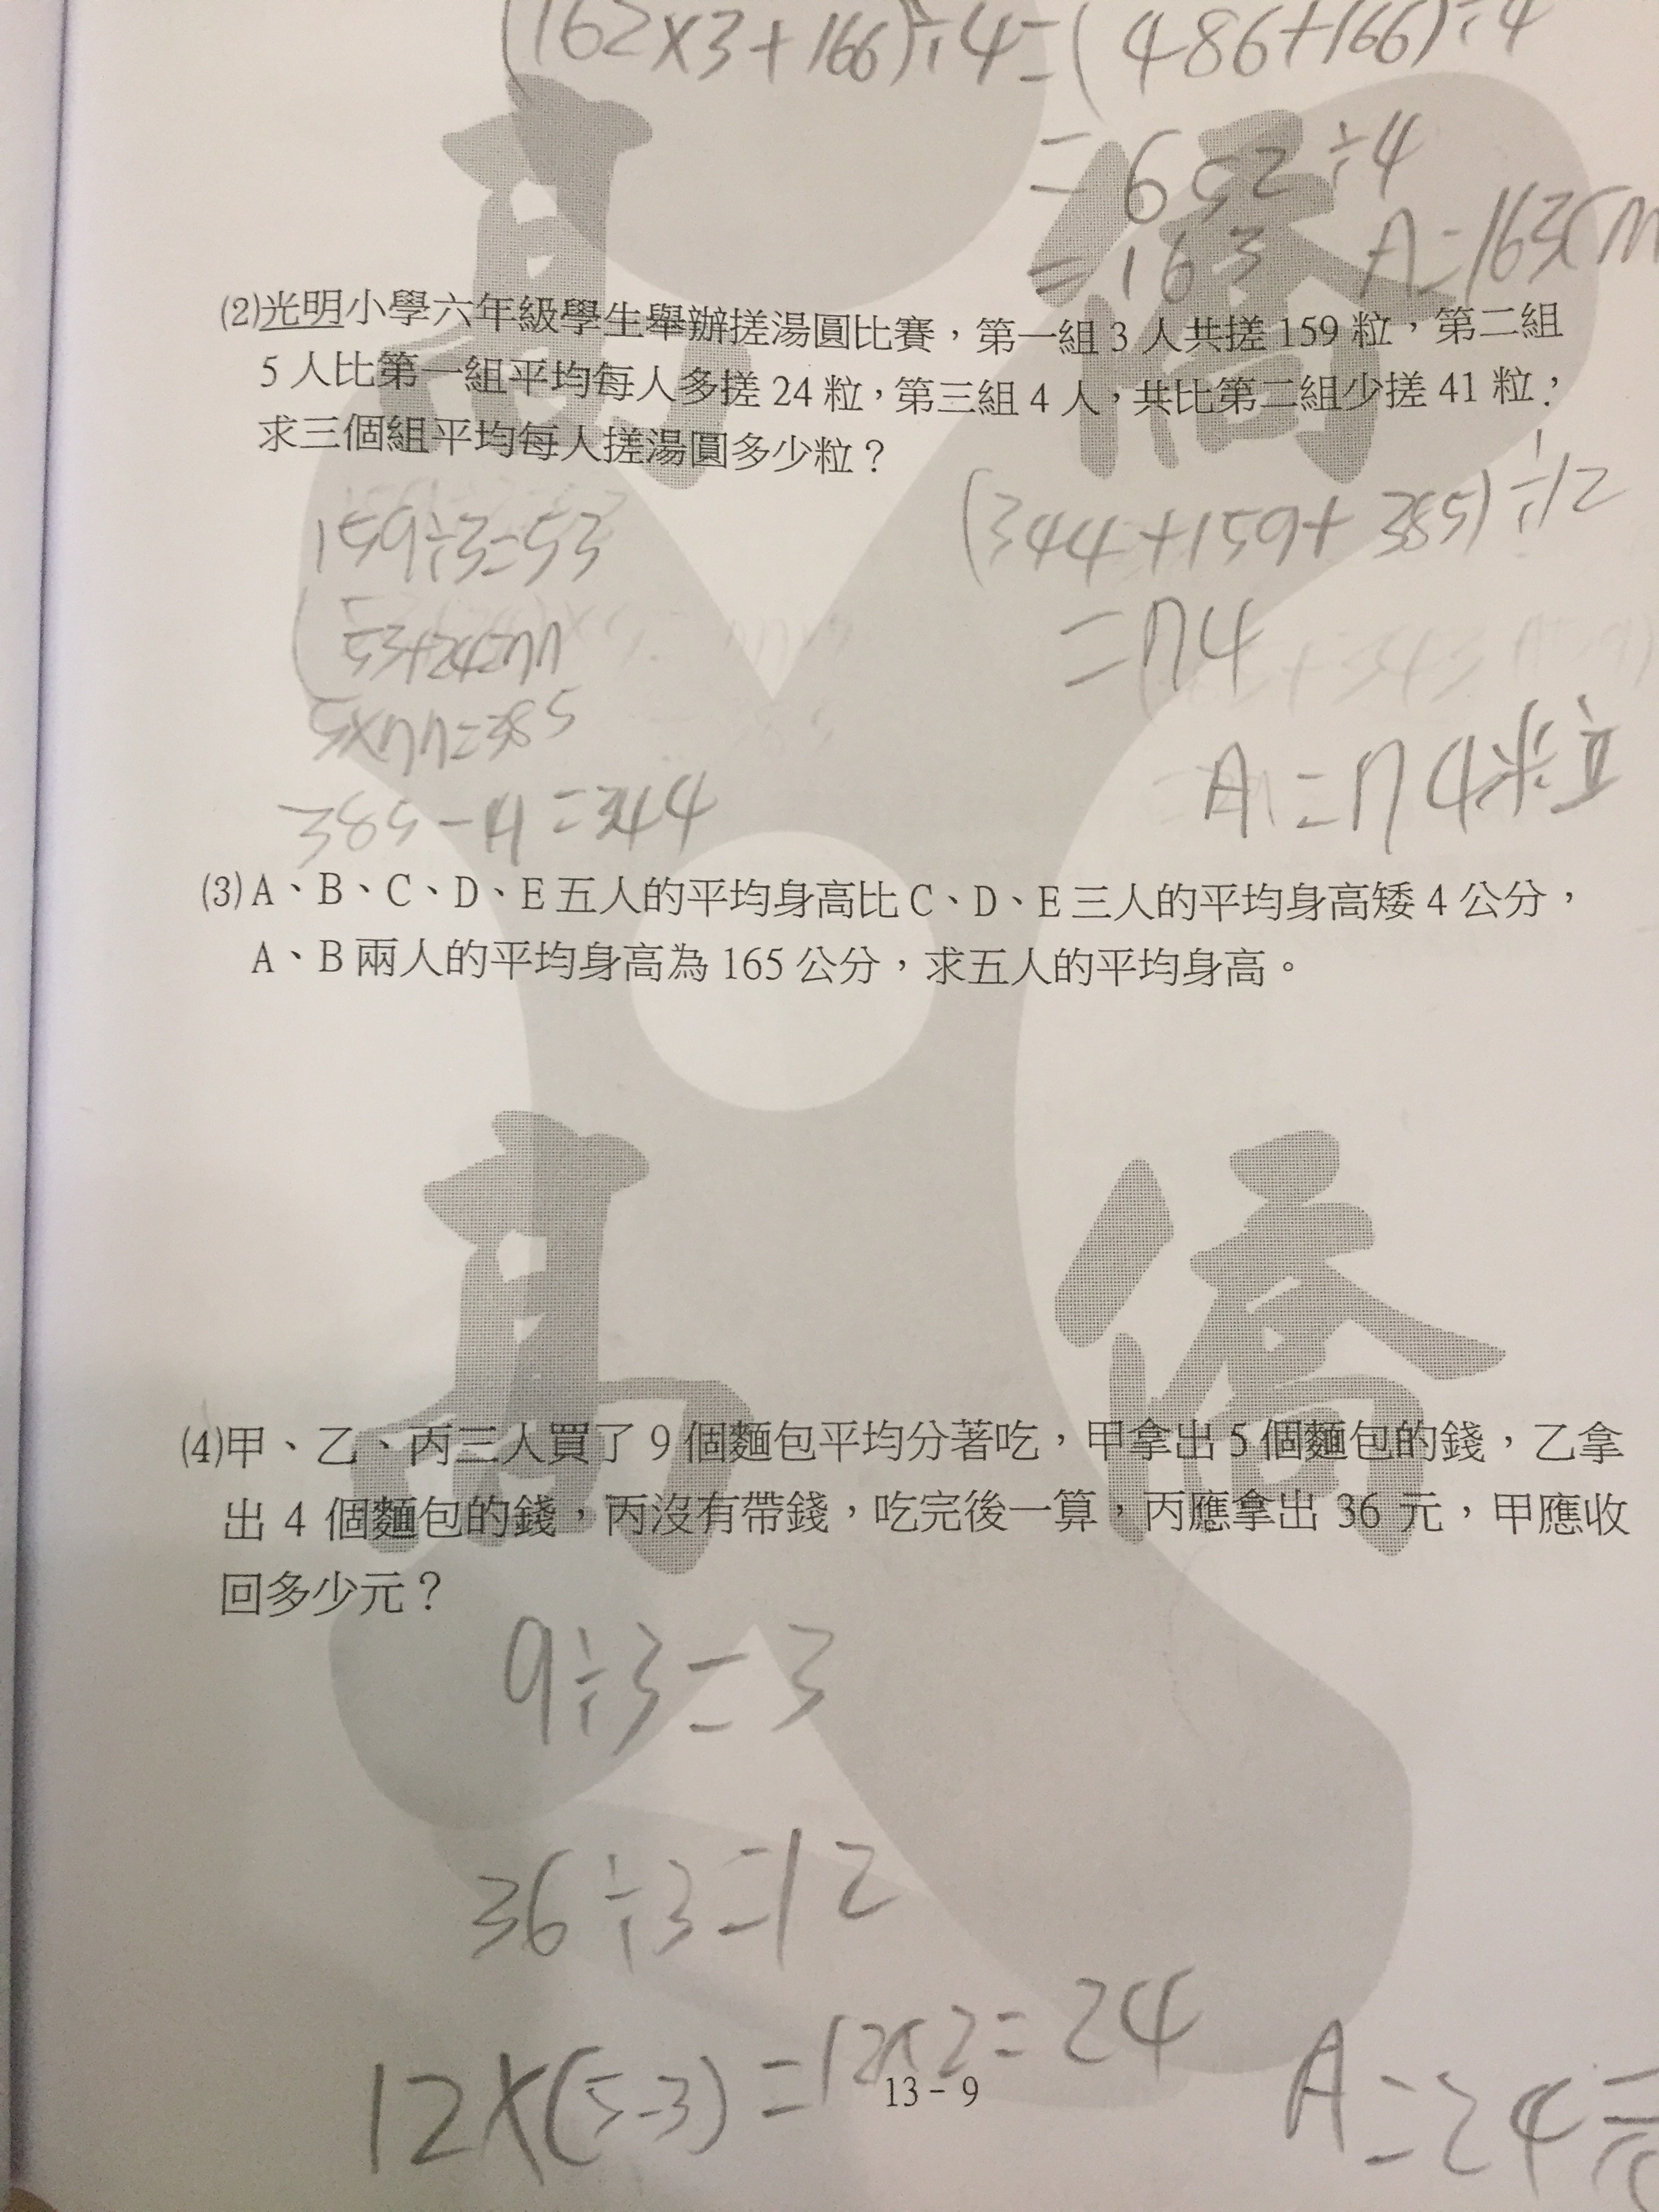 (162×3+166)÷4=(486+166)÷4
=652÷4
=163 A=163cm
(2)光明小學六年級學生舉辦搓湯圓比賽，第一組3人共搓159粒，第二組
5人比第一組平均每人多搓24粒，第三組4人，共比第二組少搓41粒，
求三個組平均每人搓湯圓多少粒？
159÷3=53
53+24=77
5×77=385
385-41=344
(344+159+385)÷12
=74
A=74粒
(3)A、B、C、D、E五人的平均身高比C、D、E三人的平均身高矮4公分，
A、B兩人的平均身高為165公分，求五人的平均身高。
(4)甲、乙、丙三人買了9個麵包平均分著吃，甲拿出5個麵包的錢，乙拿
出4個麵包的錢，丙沒有帶錢，吃完後一算，丙應拿出36元，甲應收
回多少元？
9÷3=3
36÷3=12
12×(5-3)=12×2=24
A=24元
13-9
高僑
高僑